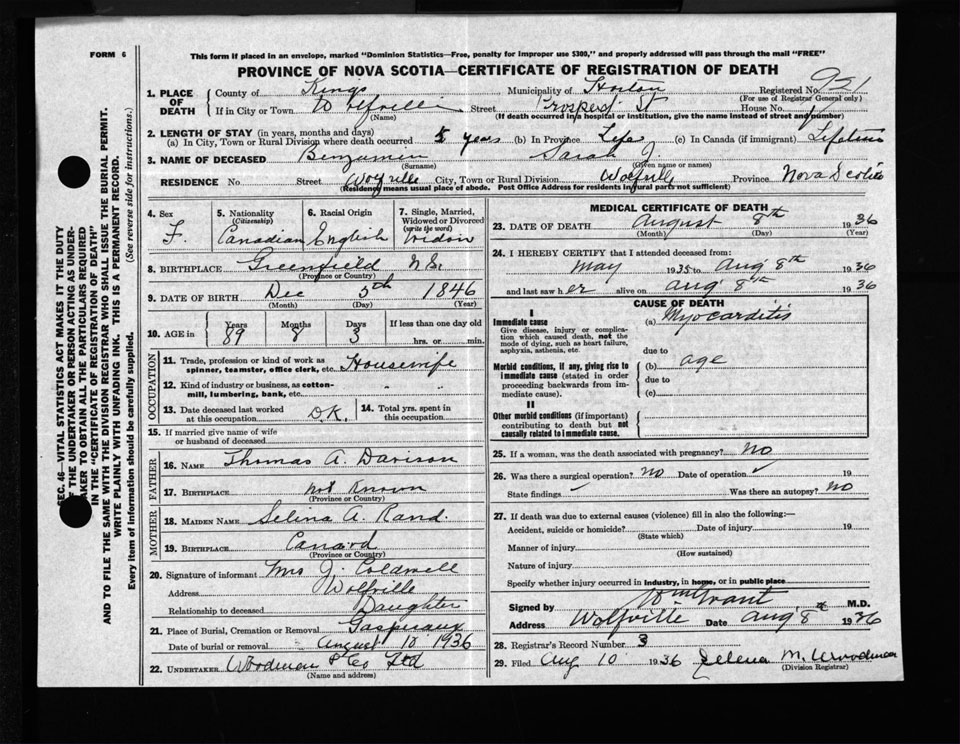 FORM 6
This form if placed in an envelope, marked "Dominion Statistics—Free, penalty for improper use $300," and properly addressed will pass through the mail "FREE"
PROVINCE OF NOVA SCOTIA—CERTIFICATE OF REGISTRATION OF DEATH
1. PLACE OF DEATH
County of Kings Municipality of Horton Registered No. 921
(For use of Registrar General only)
If in City or Town Wolfville Street Prospect St House No.
(Name) (If death occurred in a hospital or institution, give the name instead of street and number)
2. LENGTH OF STAY (in years, months and days)
(a) In City, Town or Rural Division where death occurred years (b) In Province Life (c) In Canada (if immigrant) Lifetime
3. NAME OF DECEASED Benjamin Sarah J.
(Surname) (Given name or names)
RESIDENCE No Street Wolfville City, Town or Rural Division Wolfville Province Nova Scotia
(Residency means usual place of abode. Post Office Address for residents in rural parts not sufficient)
4. Sex
F.
5. Nationality
(Citizenship)
Canadian
6. Racial Origin
English
7. Single, Married, Widowed or Divorced
(write the word)
Widow
8. BIRTHPLACE Greenfield N.S.
(Province or Country)
9. DATE OF BIRTH Dec 5th 1846
(Month) (Day) (Year)
10. AGE IN
Years 89
Months 8
Days 3
If less than one day old
hrs. or min.
OCCUPATION
11. Trade, profession or kind of work as spinner, teamster, office clerk, etc. Housewife
12. Kind of industry or business, as cotton-mill, lumbering, bank, etc.
13. Date deceased last worked at this occupation D.K.
14. Total yrs. spent in this occupation
15. If married give name of wife or husband of deceased
FATHER
16. NAME Thomas A. Davison
17. BIRTHPLACE Not Known
(Province or Country)
MOTHER
18. MAIDEN NAME Selina A. Rand
19. BIRTHPLACE Canard
(Province or Country)
20. Signature of informant Mrs J. Coldwell
Address Wolfville
Relationship to deceased Daughter
21. Place of Burial, Cremation or Removal Gaspereaux
Date of burial or removal August 10 1936
22. UNDERTAKER Woodman & Co Ltd
(Name and address)
MEDICAL CERTIFICATE OF DEATH
23. DATE OF DEATH August 8th 1936
(Month) (Day) (Year)
24. I HEREBY CERTIFY that I attended deceased from:
May 1935 to Aug 8th 1936
and last saw her alive on Aug 8th 1936
CAUSE OF DEATH
I
Immediate cause (a) Myocarditis
Give disease, injury or complication which caused death, not the mode of dying, such as heart failure, asphyxia, asthenia, etc.
due to
Morbid conditions, if any, giving rise to immediate cause (stated in order proceeding backwards from immediate cause).
(b) age
due to
(c)
II
Other morbid conditions (if important) contributing to death but not causally related to immediate cause.
25. If a woman, was the death associated with pregnancy? No
26. Was there a surgical operation? No Date of operation ✓ 19
State findings ✓ Was there an autopsy? No
27. If death was due to external causes (violence) fill in also the following:—
Accident, suicide or homicide? Date of injury 19
(State which)
Manner of injury
(How sustained)
Nature of injury
Specify whether injury occurred in industry, in home, or in public place
Signed by Grant M.D.
Address Wolfville Date Aug 8th 1936
28. Registrar's Record Number 3
29. Filed Aug 10 1936 M. Woodman
(Division Registrar)
SEC. 46—VITAL STATISTICS ACT MAKES IT THE DUTY OF THE UNDERTAKER OR PERSON ACTING AS UNDERTAKER TO OBTAIN ALL THE PARTICULARS REQUIRED IN THE "CERTIFICATE OF REGISTRATION OF DEATH" AND TO FILE THE SAME WITH THE DIVISION REGISTRAR WHO SHALL ISSUE THE BURIAL PERMIT.
WRITE PLAINLY WITH UNFADING INK. THIS IS A PERMANENT RECORD.
Every item of information should be carefully supplied. (See reverse side for instructions.)